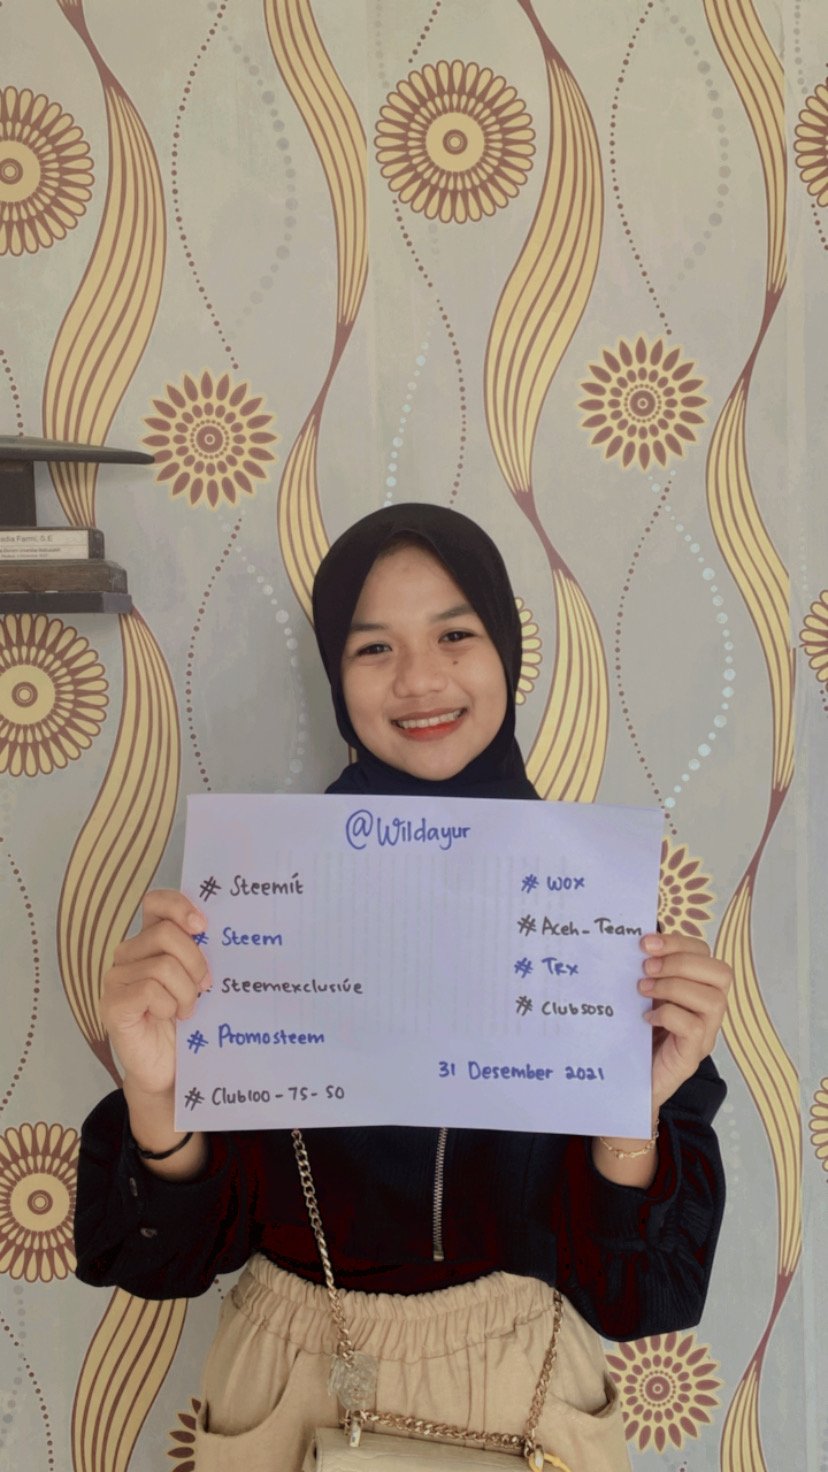 @Wildayur
# Steemit
# Steem
# Steemexclusive
# Promosteem
# Club100 - 75 - 50
# WOX
# Aceh - Team
# TRX
# Club5050
31 Desember 2021
Farmi, S.E